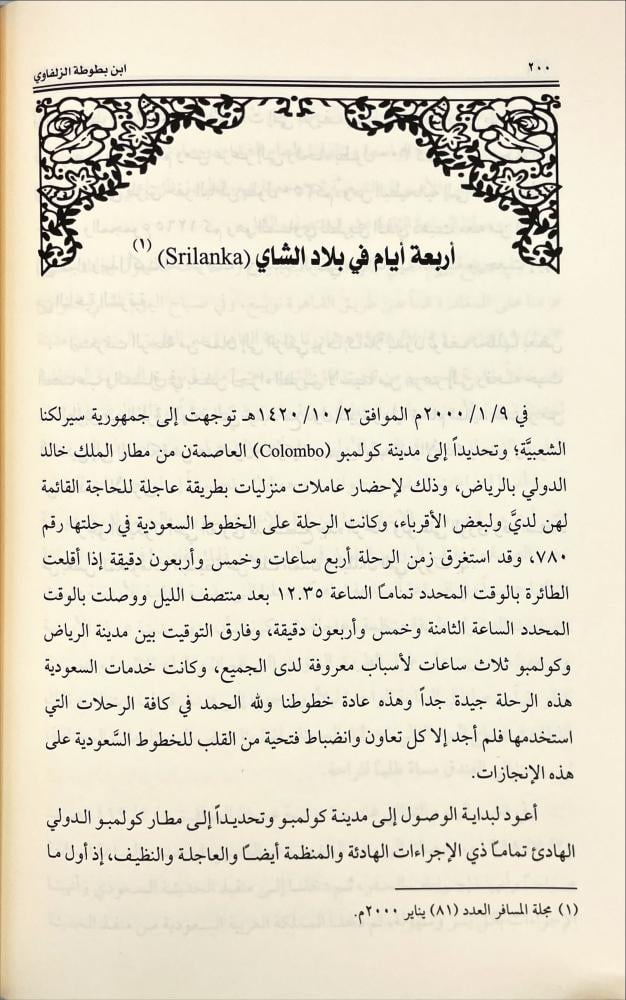 ٢٠٠
ابن بطوطة الزلفاوي
أربعة أيام في بلاد الشاي (Srilanka) (١)
في ٢٠٠٠/١/٩م الموافق ١٤٢٠/١٠/٢هـ توجهت إلى جمهورية سيرلكنا
الشعبيَّة؛ وتحديداً إلى مدينة كولمبو (Colombo) العاصمةن من مطار الملك خالد
الدولي بالرياض، وذلك لإحضار عاملات منزليات بطريقة عاجلة للحاجة القائمة
لهن لديَّ ولبعض الأقرباء، وكانت الرحلة على الخطوط السعودية في رحلتها رقم
٧٨٠، وقد استغرق زمن الرحلة أربع ساعات وخمس وأربعون دقيقة إذا أقلعت
الطائرة بالوقت المحدد تماماً الساعة ١٢.٣٥ بعد منتصف الليل ووصلت بالوقت
المحدد الساعة الثامنة وخمس وأربعون دقيقة، وفارق التوقيت بين مدينة الرياض
وكولمبو ثلاث ساعات لأسباب معروفة لدى الجميع، وكانت خدمات السعودية
هذه الرحلة جيدة جداً وهذه عادة خطوطنا ولله الحمد في كافة الرحلات التي
استخدمها فلم أجد إلا كل تعاون وانضباط فتحية من القلب للخطوط السَّعودية على
هذه الإنجازات.
أعود لبداية الوصول إلى مدينة كولمبو وتحديداً إلى مطار كولمبو الدولي
الهادئ تماماً ذي الإجراءات الهادئة والمنظمة أيضاً والعاجلة والنظيف، إذ أول ما
(١) مجلة المسافر العدد (٨١) يناير ٢٠٠٠م.